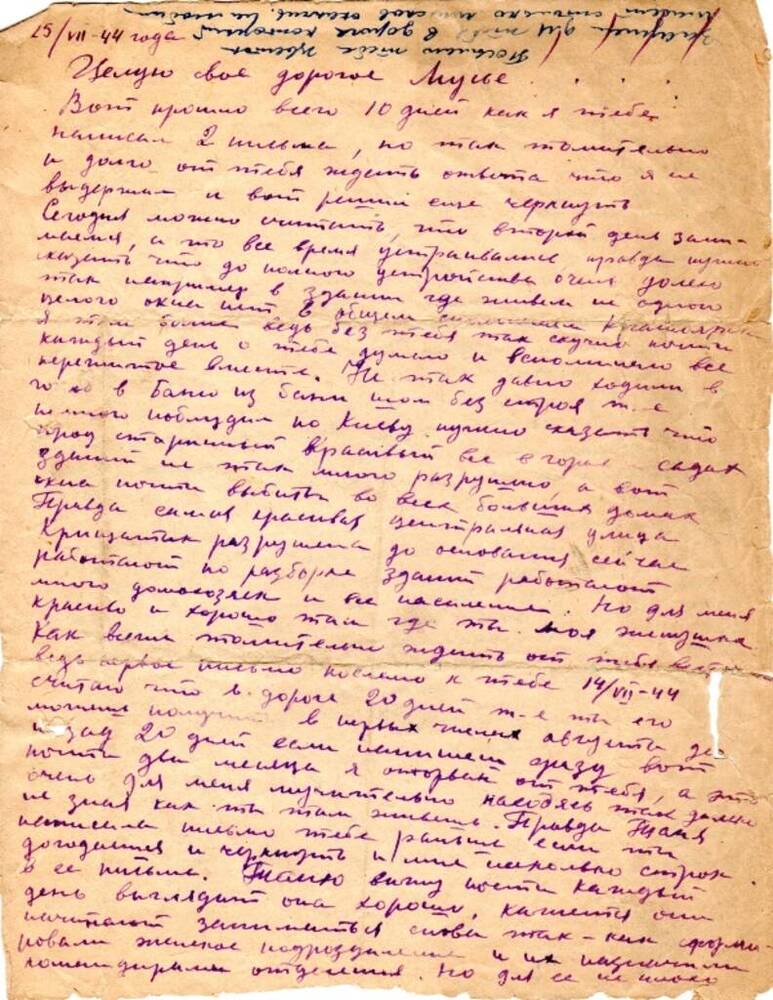 25/VII-44 года
Целую свое дорогое Мусье
Вот прошло всего 10 дней как я тебе
написал 2 письма, но так томительно
и долго от тебя ждать ответа что я не
выдержал и вот решил еще черкнуть
Сегодня можно считать, что второй день зани-
маемся, а то все время устраивались правда нужно
сказать что до полного устройства очень далеко
так например в здании где живем ни одного
целого окна нет в общем
Я тем более ведь без тебя так скучно почти
каждый день о тебе думаю и вспоминаю все
пережитое вместе. Не так давно ходили в
в баню из бани шли без строя т-е
немного поблудил по Киеву нужно сказать что
город старинный красивый все в горах садах
зданий не так много разрушено, а вот
окна почти выбиты во всех больших домах
Правда самая красивая центральная улица
Крищатик разрушена до основания сейчас
работают по разборке зданий работают
много домохозяек и все население. Но для меня
красиво и хорошо там где ты моя женушка
Как всегда томительно ждать от тебя
ведь первое письмо послано к тебе 14/VII-44
считаю что в дороге 20 дней т-е ты его
можешь получить в первых числах августа да
назад 20 дней если напишешь сразу вот
почти два месяца я оторван от тебя, а это
очень для меня мучительно находясь так далеко
не зная как ты там живешь. Правда Таня
написала письмо тебе раньше если ты
догадаешся и черкнешь и мне несколько строк
в ее письма. Таню вижу почти каждый
день выглядит она хорошо, кажется они
начинают заниматься снова так-как сформи-
ровали женское подразделение и их назначили
командирами отделения. Но для ее не плохо